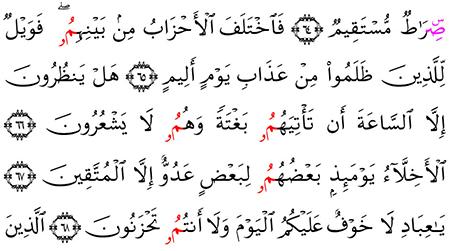 صِرَٰطٌ مُّسْتَقِيمٌ ﴿٦٤﴾ فَٱخْتَلَفَ ٱلْأَحْزَابُ مِنۢ بَيْنِهِمُۥ ۖ فَوَيْلٌ
لِّلَّذِينَ ظَلَمُوا۟ مِنْ عَذَابِ يَوْمٍ أَلِيمٍ ﴿٦٥﴾ هَلْ يَنظُرُونَ
إِلَّا ٱلسَّاعَةَ أَن تَأْتِيَهُمُۥ بَغْتَةً وَهُمُۥ لَا يَشْعُرُونَ ﴿٦٦﴾
ٱلْأَخِلَّآءُ يَوْمَئِذٍۭ بَعْضُهُمُۥ لِبَعْضٍ عَدُوٌّ إِلَّا ٱلْمُتَّقِينَ ﴿٦٧﴾
يَٰعِبَادِ لَا خَوْفٌ عَلَيْكُمُ ٱلْيَوْمَ وَلَآ أَنتُمُۥ تَحْزَنُونَ ﴿٦٨﴾ ٱلَّذِينَ